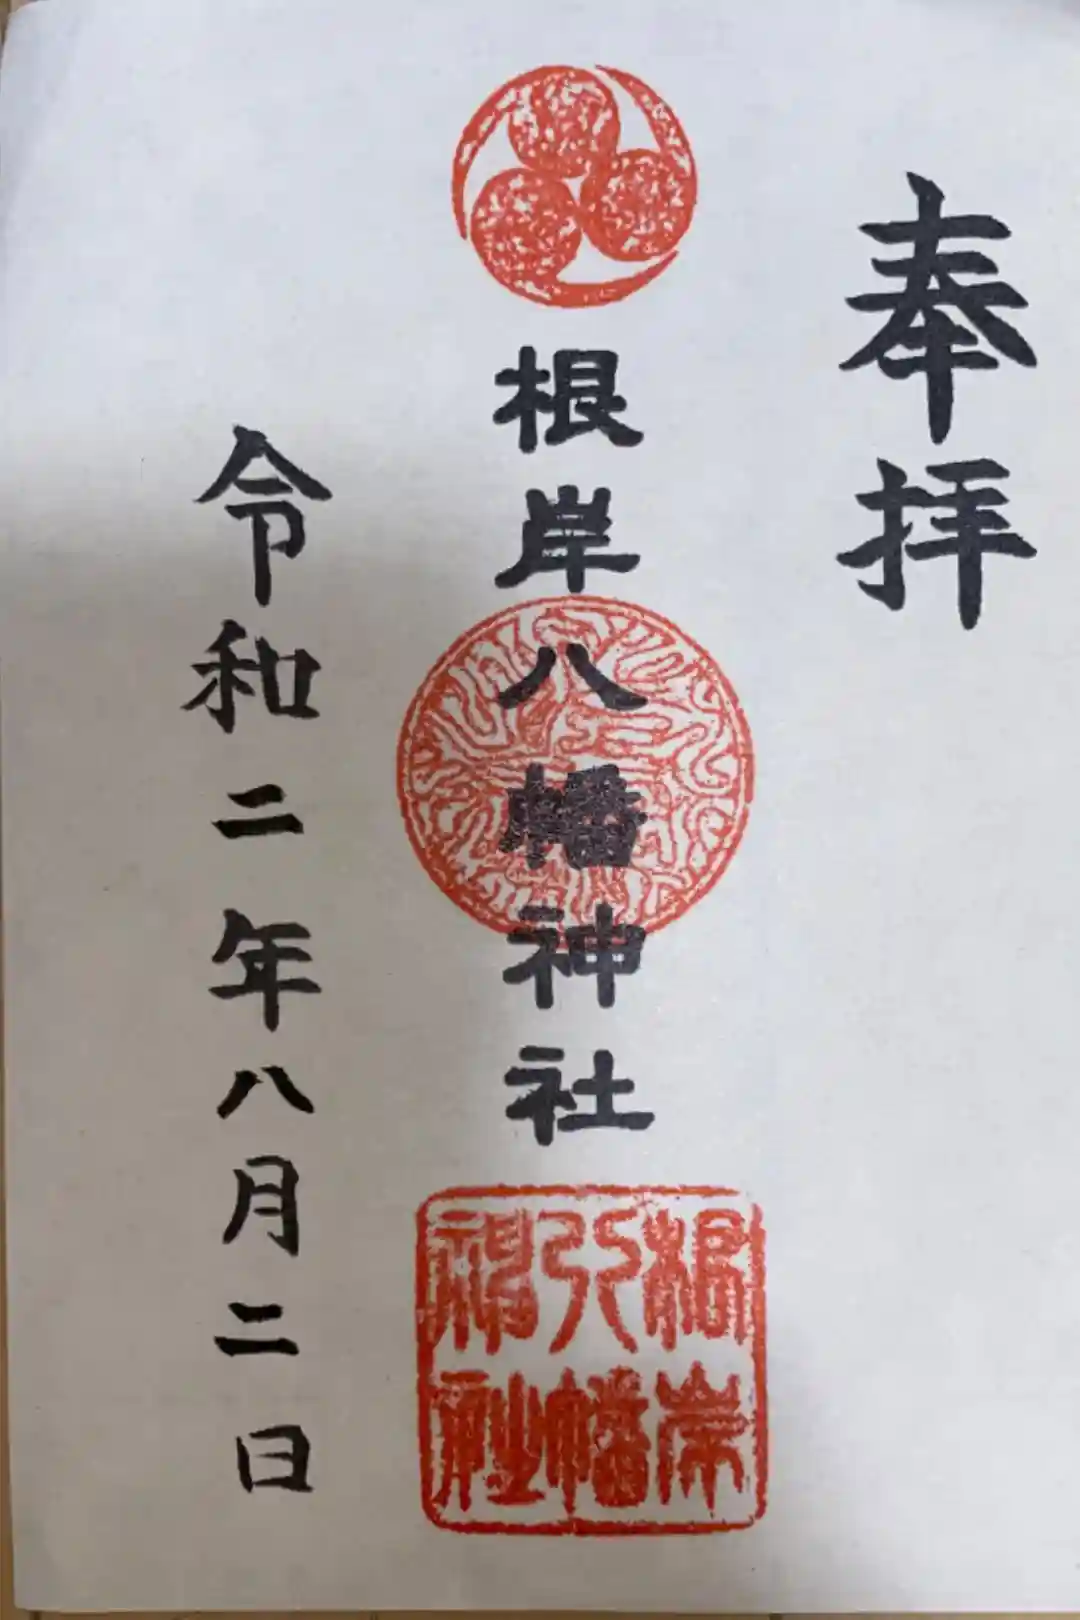 奉拝
根岸八幡神社
根岸
八幡
神社
令和二年八月二日